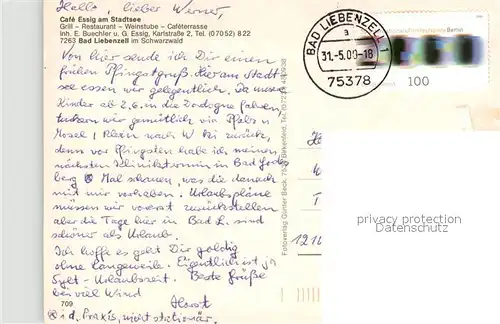 Hallo, lieber Werner,
Café Essig am Stadtsee
Grill – Restaurant – Weinstube – Caféterrasse
Inh. E. Buechler u. G. Essig, Karlstraße 2, Tel. (07052) 822
7263 Bad Liebenzell im Schwarzwald
Von hier sende ich Dir einen
frühen Pfingstgruß. Hier am Stadt
see essen wir gelegentlich. Da unsere
Kinder ab 2.6. in die Dordogne fahren,
wir gemütlich via Pfalz
Mosel, Rhein nach W zurück,
denn vor Pfingsten habe ich meinen
nächsten Kliniktermin in Bad
berg Mal schauen, was die danach
mit mir vorhaben. Urlaubspläne
müssen wir vorerst zurückstellen
aber die Tage hier in Bad L. sind
schöner als Urlaub.
Ich hoffe es geht Dir goldig
ohne Langeweile. Eigentlich ist ja
Sylt-Urlaubszeit. Beste Grüße
bei viel Wind
Horst
709
i. d. Praxis, nicht stationär.
Fotoverlag Günter Beck, Birkenfeld, Tel.
BAD LIEBENZELL 1
a
31.-5.00-18
75378
100
privacy protection
Datenschutz